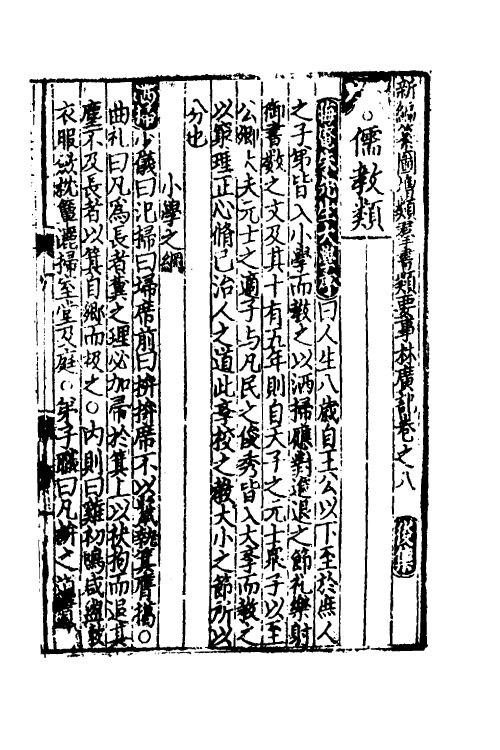 新編纂圖增類羣書類要事林廣記卷之八 後集
○儒教類
晦菴朱先生大學序曰人生八歳自王公以下至於庶人
之子弟皆入小學而教之以洒掃應對進退之節礼樂射
御書数之文及其十有五年則自天子之元士衆子以至
公卿大夫元士之適子与凡民之俊秀皆入大學而教之
以窮理正心脩已治人之道此學校之教大小之節所以
分也
小學之綱
洒掃少儀曰汜掃曰埽埽席前曰拚拚席不以鬛執箕膺擖○
曲礼曰凡爲長者糞之礼必加帚於箕上以袂拘而退其
塵不及長者以箕自郷而扱之○内則曰雞初鳴咸盥漱
衣服歛枕簟灑掃室堂及庭○弟子職曰凡拚之